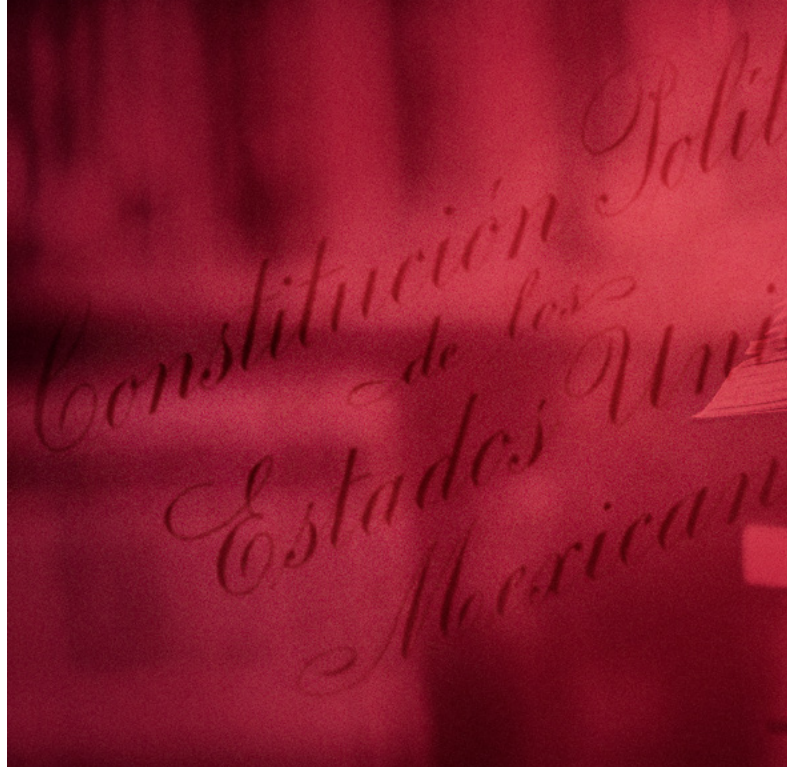 Constitución Polít
de los
Estados Uni
Mexican